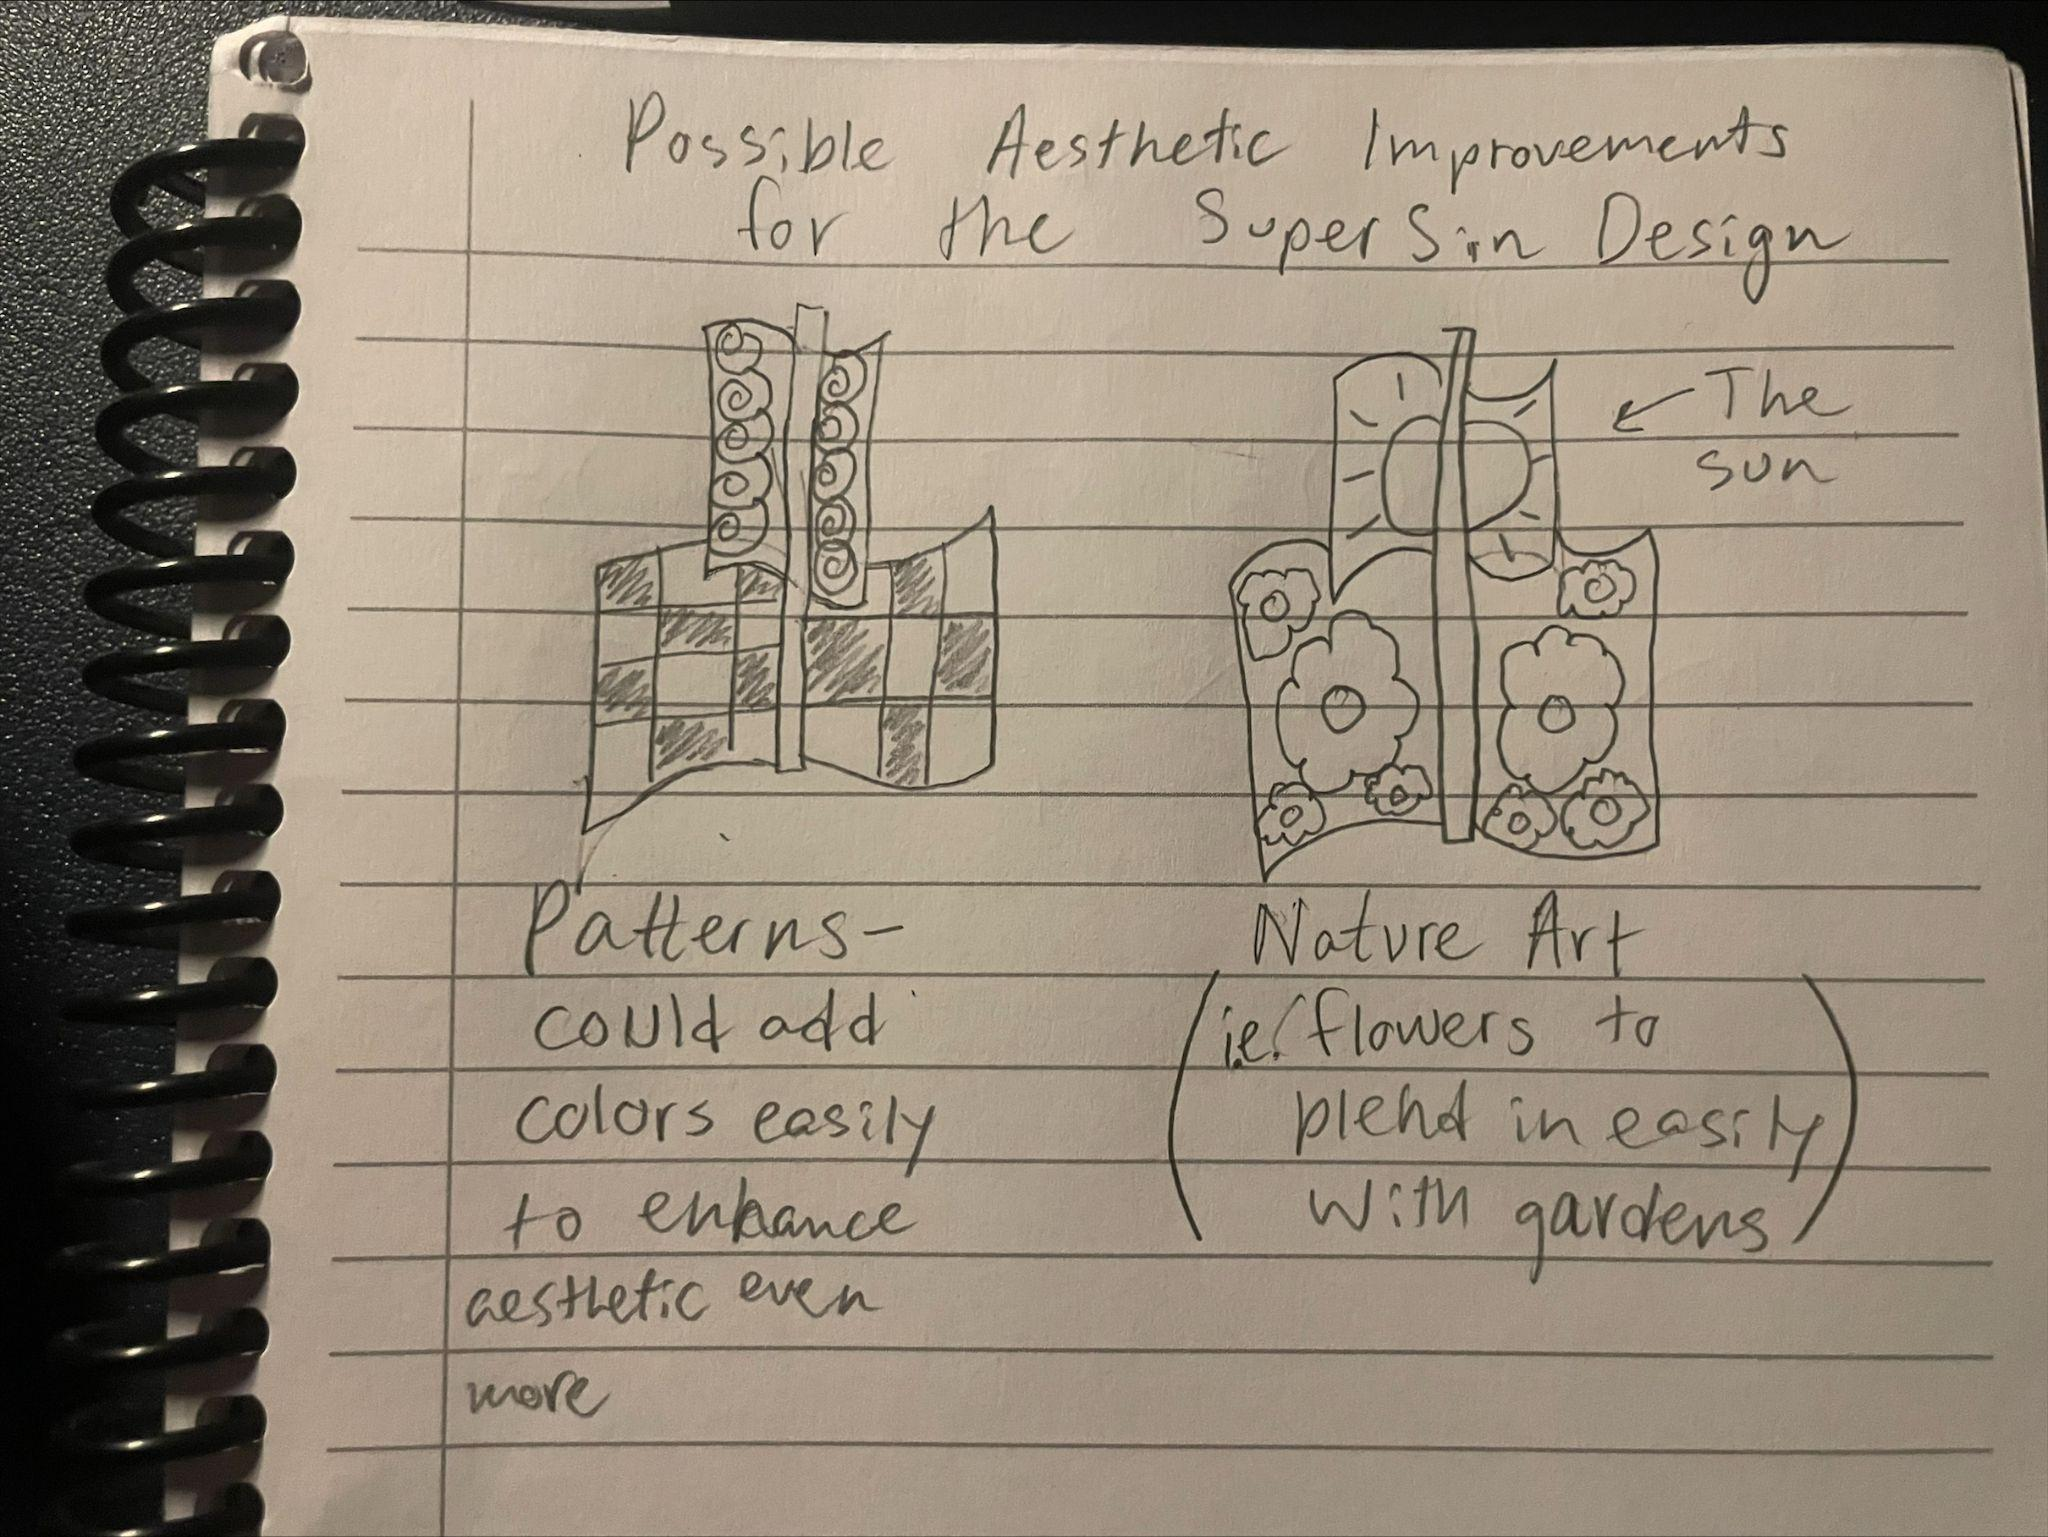 Possible Aesthetic Improvements
for the SuperSin Design
The
sun
Patterns-
could add
colors easily
to enhance
aesthetic even
more
Nature Art
(i.e. flowers to
blend in easily
with gardens)